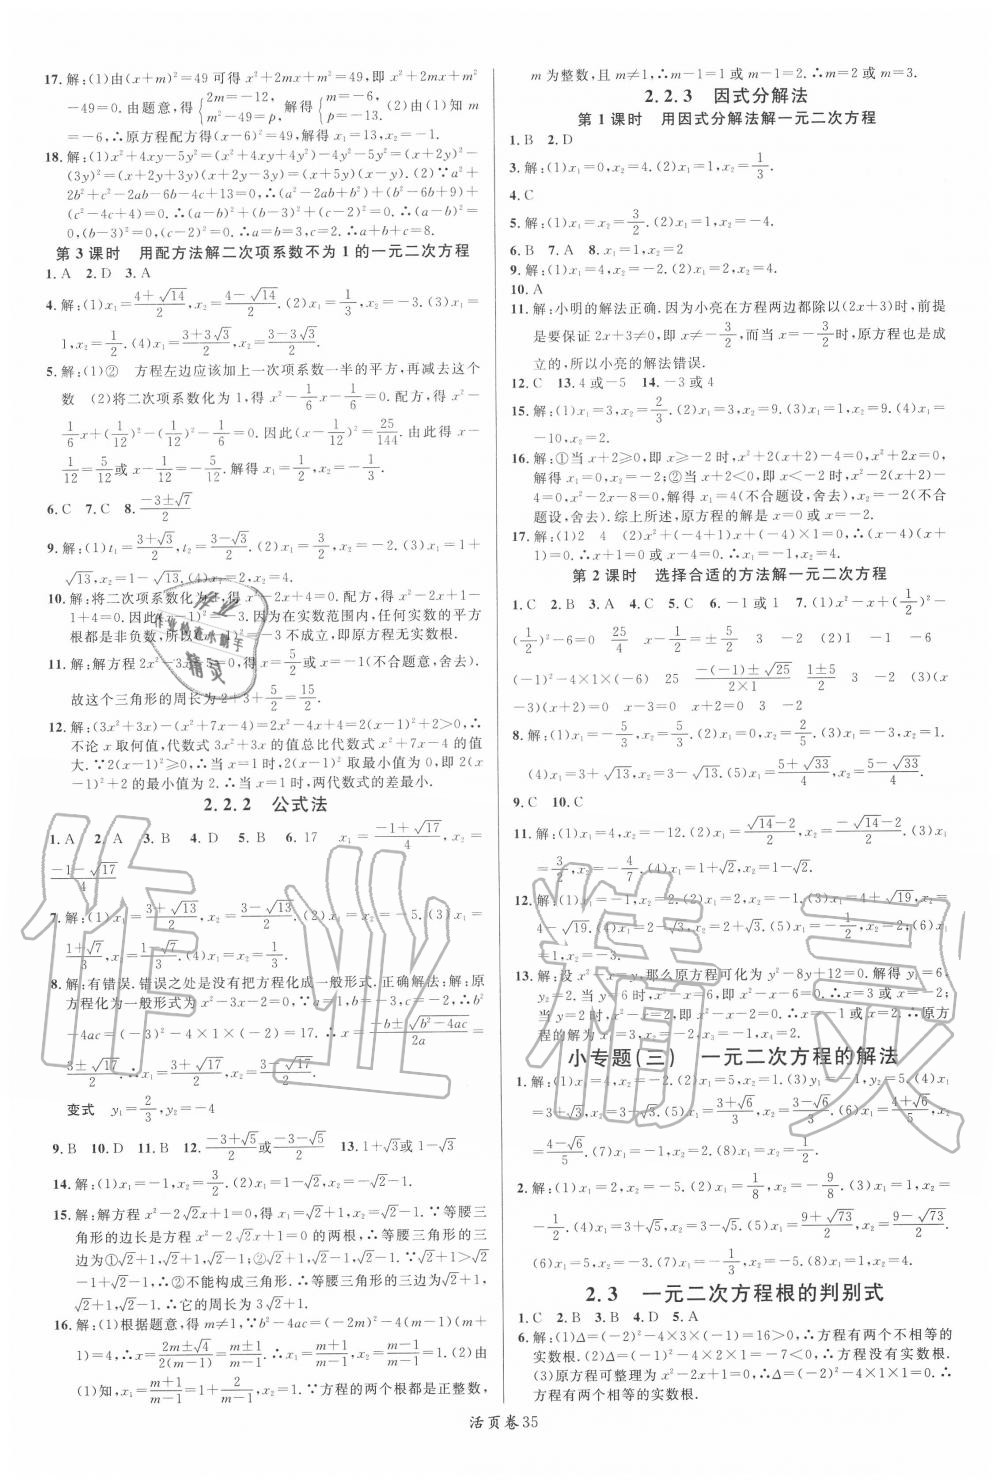 17. 解:(1)由(x+m)²=49 可得 x²+2mx+m²=49,即 x²+2mx+m²
-49=0. 由题意,得 {2m=-12, m²-49=p, 解得 {m=-6, p=-13. (2)由(1)知 m
=-6,∴原方程配方得(x-6)²=49. 解得 x₁=13,x₂=-1.
18. 解:(1)x²+4xy-5y²=(x²+4xy+4y²)-4y²-5y²=(x+2y)²-
(3y)²=(x+2y+3y)(x+2y-3y)=(x+5y)(x-y). (2)∵a²+
2b²+c²-2ab-6b-4c+13=0,∴(a²-2ab+b²)+(b²-6b+9)+
(c²-4c+4)=0. ∴(a-b)²+(b-3)²+(c-2)²=0. ∴(a-b)²=
0,(b-3)²=0,(c-2)²=0. ∴a=b=3,c=2. ∴a+b+c=8.
第 3 课时 用配方法解二次项系数不为 1 的一元二次方程
1. A 2. D 3. A
4. 解:(1)x₁=(4+√14)/2,x₂=(4-√14)/2. (2)x₁=1/3,x₂=-3. (3)x₁=
1,x₂=1/2. (4)x₁=(3+3√3)/2,x₂=(3-3√3)/2.
5. 解:(1)② 方程左边应该加上一次项系数一半的平方,再减去这个
数 (2)将二次项系数化为 1,得 x²-1/6x-1/6=0. 配方,得 x²-
1/6x+(1/12)²-(1/12)²-1/6=0. 因此(x-1/12)²=25/144. 由此得 x-
1/12=5/12或 x-1/12=-5/12. 解得 x₁=1/2,x₂=-1/3.
6. C 7. C 8. (-3±√7)/2
9. 解:(1)t₁=(3+√3)/2,t₂=(3-√3)/2. (2)x₁=3/2,x₂=-2. (3)x₁=1+
√13,x₂=1-√13. (4)x₁=2,
10. 解:将二次项系数化为 1,得 x²-2x+4=0. 配方,得 x²-2x+1-
1+4=0. 因此(x-1)²=-3. 因为在实数范围内,任何实数的平方
根都是非负数,所以(x-1)²=-3 不成立,即原方程无实数根.
11. 解:解方程 2x²-3x-5=0,得 x=5/2或 x=-1(不合题意,舍去).
故这个三角形的周长为 2+3+5/2=15/2.
12. 解:(3x²+3x)-(x²+7x-4)=2x²-4x+4=2(x-1)²+2>0,∴
不论 x 取何值,代数式 3x²+3x 的值总比代数式 x²+7x-4 的值
大. ∵2(x-1)²≥0,∴当 x=1时,2(x-1)²取最小值为 0,即 2(x
-1)²+2的最小值为 2. ∴当 x=1 时,两代数式的差最小.
2.2.2 公式法
1. A 2. A 3. B 4. D 5. B 6. 17 x₁=(-1+√17)/4,x₂=
(-1-√17)/4
7. 解:(1)x₁=(3+√13)/2,x₂=(3-√13)/2. (2)x₁=1,x₂=-5. (3)x₁=
(1+√7)/3,x₂=(1-√7)/3.
8. 解:有错误. 错误之处是没有把方程化成一般形式. 正确解法:解:原
方程化为一般形式为 x²-3x-2=0,∵a=1,b=-3,c=-2,∴b²
-4ac=(-3)²-4×1×(-2)=17. ∴x=(-b±√(b²-4ac))/2a=
(3±√17)/2. ∴x₁=(3+√17)/2,x₂=(3-√17)/2.
变式 y₁=2/3,y₂=-4
9. B 10. D 11. B 12. (-3+√5)/2或(-3-√5)/2 13. 1+√3或 1-√3
14. 解:(1)x₁=-1,x₂=3/2. (2)x₁=1-√2,x₂=-1-√2.
15. 解:解方程 x²-2√2x+1=0,得 x₁=√2+1,x₂=√2-1. ∵等腰三
角形的边长是方程 x²-2√2x+1=0 的两根,∴等腰三角形的三
边为①√2+1,√2+1,√2-1;②√2+1,√2-1,√2-1. ∵√2+1>√2
-1+√2-1,∴②不能构成三角形. ∴等腰三角形的三边为√2+1,
√2+1,√2-1. ∴它的周长为 3√2+1.
16. 解:(1)根据题意,得 m≠1,∵b²-4ac=(-2m)²-4(m-1)(m+
1)=4,∴x=(2m±√4)/(2(m-1))=(m±1)/(m-1). ∴x₁=(m+1)/(m-1),x₂=1. (2)由
(1)知,x₁=(m+1)/(m-1)=1+2/(m-1). ∵方程的两个根都是正整数,
m 为整数,且 m≠1,∴m-1=1或 m-1=2. ∴m=2或 m=3.
2.2.3 因式分解法
第 1 课时 用因式分解法解一元二次方程
1. B 2. D
3. 解:(1)x₁=0,x₂=4. (2)x₁=1,x₂=1/3.
4. C
5. 解:(1)x₁=0,x₂=3/2. (2)x₁=2,x₂=-4.
6. B 7. A 8. x₁=1,x₂=-2
9. 解:(1)x₁=x₂=-2. (2)x₁=4,x₂=1.
10. A
11. 解:小明的解法正确. 因为小亮在方程两边都除以(2x+3)时,前提
是要保证 2x+3≠0,即 x≠-3/2,而当 x=-3/2时,原方程也是成
立的,所以小亮的解法错误.
12. C 13. 4 或-5 14. -3 或 4
15. 解:(1)x₁=3,x₂=2/3. (2)x₁=3,x₂=9. (3)x₁=1,x₂=9. (4)x₁=
-10,x₂=2.
16. 解:①当 x+2≥0,即 x≥-2 时,x²+2(x+2)-4=0,x²+2x=0.
解得 x₁=0,x₂=-2;②当 x+2<0,即 x<-2 时,x²-2(x+2)-
4=0,x²-2x-8=0,解得 x₁=4(不合题设,舍去),x₂=-2(不合
题设,舍去). 综上所述,原方程的解是 x=0或 x=-2.
17. 解:(1)2 4 (2)x²+(-4+1)x+(-4)×1=0,∴(x-4)(x+
1)=0. ∴x-4=0 或 x+1=0. ∴x₁=4,x₂=-1.
第 2 课时 选择合适的方法解一元二次方程
1. C 2. B 3. A 4. C 5. C 6. -1 或 1 7. (1)x²-x+(1/2)²-
(1/2)²-6=0 25/4 x-1/2=±5/2 3 -2 (2)1 -1 -6
(-1)²-4×1×(-6) 25 (-(-1)±√25)/(2×1) (1±5)/2 3 -2 (3)(x
-3)(x+2)=0 x-3=0 x+2=0 3 -2
8. 解:(1)x₁=-5/3,x₂=5/3. (2)x₁=0,x₂=2/5. (3)x₁=-3,x₂=1.
(4)x₁=3+√13,x₂=3-√13. (5)x₁=(5+√33)/4,x₂=(5-√33)/4.
9. C 10. C
11. 解:(1)x₁=4,x₂=-12. (2)x₁=(√14-2)/2,x₂=(-√14-2)/2. (3)x₁
=3/2,x₂=-4/7. (4)x₁=1+√2,x₂=1-√2.
4-√19. (4)x₁=√3,x₂=√2. (5)x₁=-1/2,x₂=2. (6)x₁=
1,x₂=-3.
小专题(三) 一元二次方程的解法
2. 解:(1)x₁=2,x₂=-5. (2)x₁=1/8,x₂=-9/8. (3)x₁=1,x₂=
-1/2. (4)x₁=3+√5,x₂=3-√5. (5)x₁=(9+√73)/2,x₂=(9-√73)/2.
(6)x₁=5,x₂=-3. (7)x₁=-1/3,x₂=-1.
2.3 一元二次方程根的判别式
1. C 2. B 3. B 4. D 5. A
6. 解:(1)Δ=(-2)²-4×3×(-1)=16>0,∴方程有两个不相等的
实数根. (2)Δ=(-1)²-4×2×1=-7<0,∴方程没有实数根.
(3)原方程可整理为 x²-2x+1=0. Δ=(-2)²-4×1×1=0,∴
方程有两个相等的实数根.
活页卷35
作业精灵